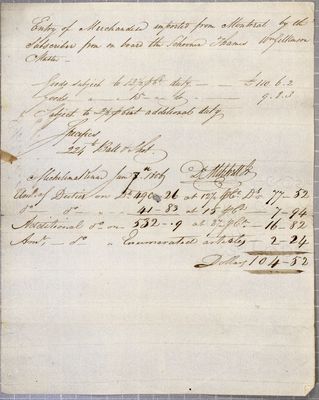 Entry of Merchandize imported from Montreal by the
Subscriber from on board the Schooner Thames Wm
Master
Goods subject to 12½ pCt duty — £110. 6. 2
Goods " 15 " do — 9. 8. 3
Subject to 2½ pCt additional duty
224 lb Ball & Shot
Michilimackinac June 1805 D. Mitchell
Amt of Duties on Ds 490 26 at 12½ pCt Ds 77-52
do do 41-83 at 15 pCt 7-94
Additional do on 532-9 at 2½ pCt 16-82
Amt do " Enumerated articles 2-24
Dollars 104-52